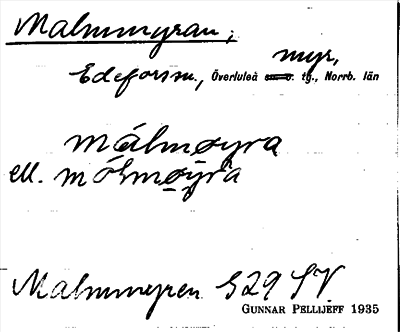 Malmmyran,
myr,
Edeforsm., Överluleå tg., Norrb. län
målmøyra
ell. mólmø̱ÿra
Malmmyren S29 SV
GUNNAR PELLIJEFF 1935